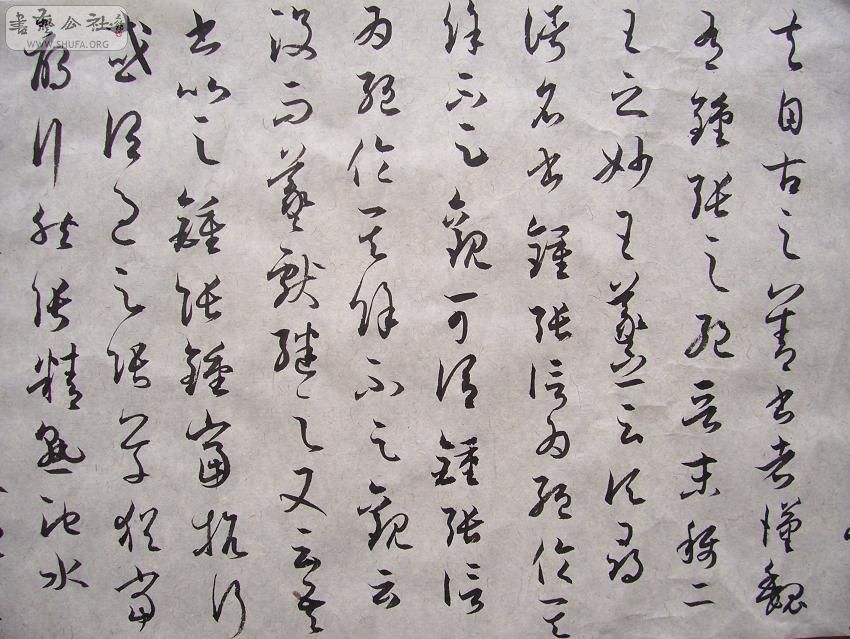 夫自古之善書者漢魏
有鍾張之絕晉末稱二
王之妙王羲之云頃尋
諸名書鍾張信為絕倫其
餘不足觀可謂鍾張信
為絕倫其餘不足觀云
沒而羲獻繼之又云吾
書比之鍾張鍾當抗行
或謂過之張草猶當
雁行然張精熟池水
書藝公社
WWW.SHUFA.ORG